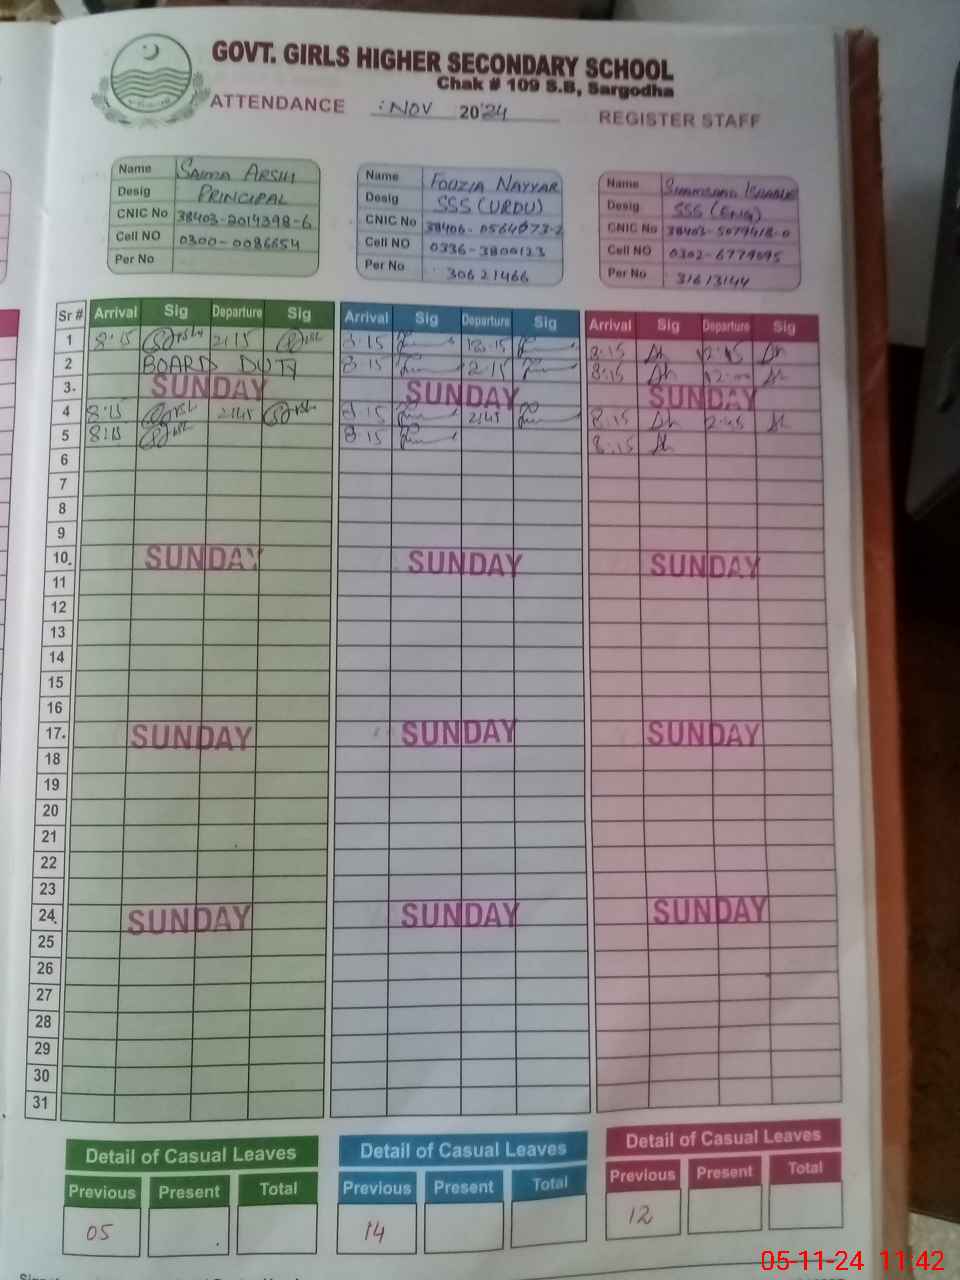 GOVT. GIRLS HIGHER SECONDARY SCHOOL
Chak # 109 S.B, Sargodha
ATTENDANCE : NOV 2024 REGISTER STAFF
Name SAIMA ARSHI
Desig PRINCIPAL
CNIC No 38403-2019398-6
Cell NO 0300-0086654
Per No
Name FOUZIA NAYYAR
Desig SSS (URDU)
CNIC No 38406-0564073-2
Cell NO 0336-3800123
Per No 30621466
Name
Desig SSS (ENG)
CNIC No 38403-5079418-0
Cell NO 0302-6779095
Per No 31613144
Sr # Arrival Sig Departure Sig Arrival Sig Departure Sig Arrival Sig Departure Sig
1 8:15 2:15 8:15 12:15 8:15 12:15
2 BOARD DUTY 8:15 2:15 8:15 12:00
3. SUNDAY SUNDAY SUNDAY
4 8:15 2:45 8:15 2:45 8:15 2:45
5 8:15 8:15 8:15
6
7
8
9
10. SUNDAY SUNDAY SUNDAY
11
12
13
14
15
16
17. SUNDAY SUNDAY SUNDAY
18
19
20
21
22
23
24. SUNDAY SUNDAY SUNDAY
25
26
27
28
29
30
31
Detail of Casual Leaves Detail of Casual Leaves Detail of Casual Leaves
Previous Present Total Previous Present Total Previous Present Total
05 14 12
05-11-24 11:42